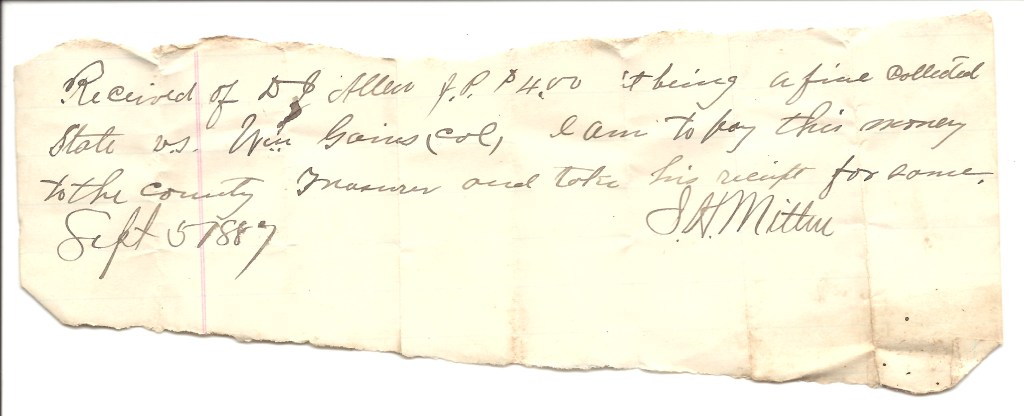 Received of D J Allen J.P. $4.00 it being a fine collected
State vs. Wm Gains (Col) I am to pay this money
to the county Treasurer and take his reciept for same.
Sept 5 1887 J. H. Mitten